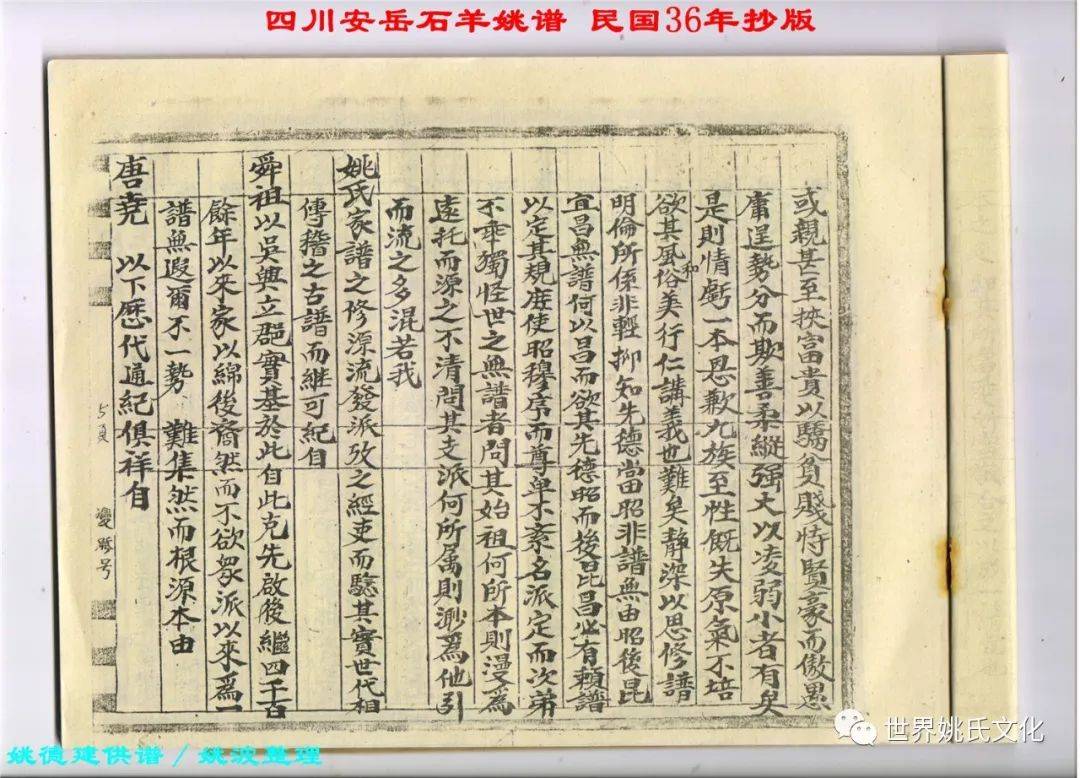 四川安岳石羊姚谱 民国36年抄版
或親甚至挾富貴以驕貧賤恃賢豪而傲愚
庸逞勢分而欺善柔縱强大以凌弱小者有矣
是則情虧一本恩歉九族至性既失原氣不培
欲其風俗和美行仁講義也難矣静深以思修譜
明倫所係非輕抑知先德當昭非譜無由昭後昆
宜昌無譜何以昌而欲其先德昭而後昆昌必有賴譜
以定其規庶使昭穆序而尊卑不紊名派定而次弟
不乖獨怪世之無譜者問其始祖何所本則漫為
遠托而源之不清問其支派何所属則渺為他引
而流之多混若我
姚氏家譜之修源流發派攷之經吏而驗其實世代相
傳稽之古譜而継可紀自
舜祖以吳興立郡實基於此自此克先啟後繼四千百
餘年以來家以綿後裔然而不欲衆派以來為一
譜無遐爾不一勢、難集然而根源本由
唐堯 以下歷代通紀俱祥自
5页
世界姚氏文化
姚德建供谱／姚波整理